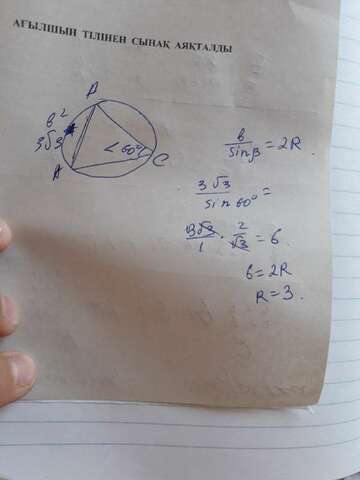 АҒЫЛШЫН ТІЛІНЕН СЫНАҚ АЯҚТАЛДЫ
A
в²
3√3
∠60°
A
C
в/sinβ = 2R.
3√3/sin60° =
3√3/1 · 2/√3 = 6.
6 = 2R
R = 3.